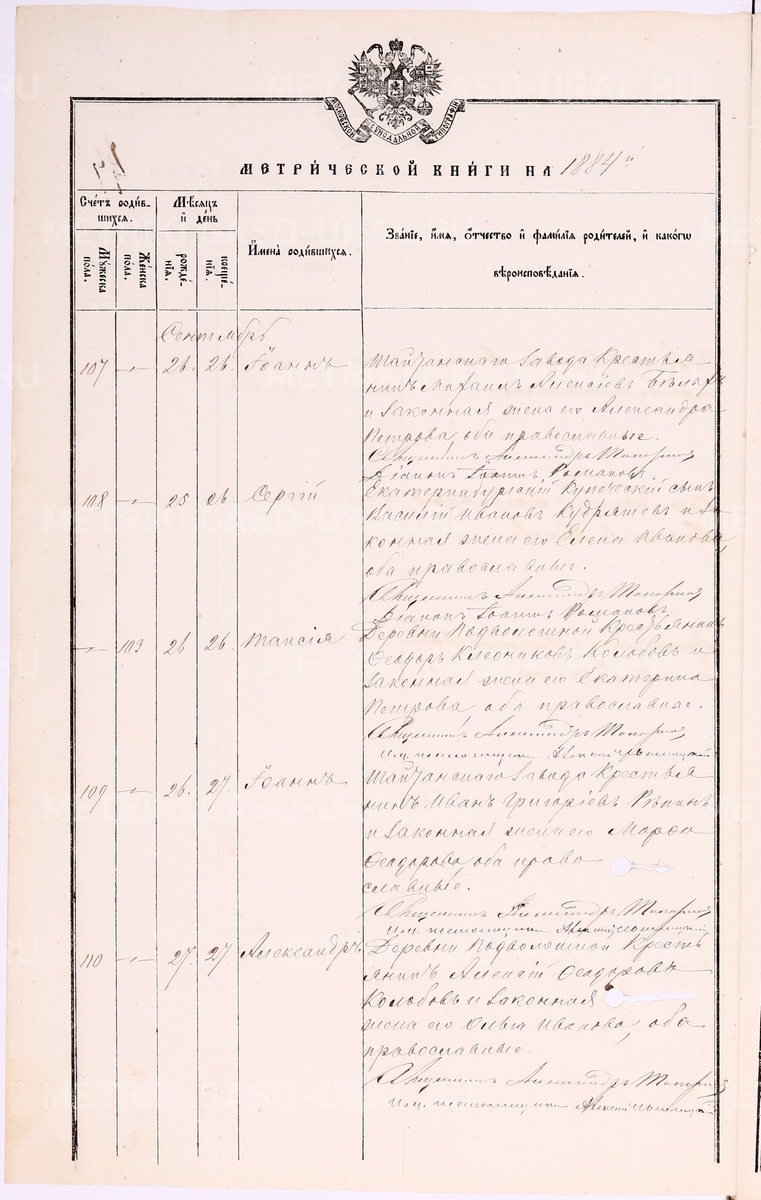 МОСКОВСКОЙ СѴНОДАЛЬНОЙ ТИПОГРАФІИ
МЕТРИ́ЧЕСКОЙ КНИ́ГИ НА 1884 й
Сче́тъ роди́в-
шихся.
М҃ꙋжеска по́ла.
Же́нска по́ла.
Мѣ́сяцъ
и҆ де́нь
рожде́-нїя.
креще́-нїя.
И҆мена̀ роди́вшихся.
Зва́нїе, и҆́мя, ѻ҆́тчество и҆ фами́лїя роди́телей, и҆ како́гѡ
вѣроисповѣ́данїя.
Сентябрь
107 -„- 26. 26. Іоаннъ
Шайтанскаго Завода Крестья
нинъ Михаилъ Алексіевъ
и Законная жена его Александра
Петрова, оба православные.
Священникъ Александръ Топорковъ
Діаконъ Іоаннъ Романовъ
108 -„- 25 26. Сергій
Екатеринбургскій Купеческій сынъ
Василій Ивановъ Кудряшевъ и За
конная жена его Елена Иванова,
оба православные.
Священникъ Александръ Топорковъ
Діаконъ Іоаннъ Романовъ
-„- 103 26 26. Таисія
Деревни Подволошной Крестьянинъ
Ѳеодоръ Колобовъ и
Законная жена его Екатерина
Петрова оба православные.
Священникъ Александръ Топорковъ
И.д. псаломщика Алексій
109 -„- 26. 27. Іоаннъ
Шайтанскаго Завода Крестья
нинъ Иванъ Григоріевъ Рѣпинъ
и Законная жена его Марѳа
Ѳеодорова оба право
славные.
Священникъ Александръ Топорковъ
И.д. псаломщика Алексій
110 -„- 27. 27 Александръ
Деревни Подволошной Кресть
янинъ Алексій Ѳеодоровъ
Колобовъ и Законная
жена его Ольга Иванова, оба
православные.
Священникъ Александръ Топорковъ
И.д. псаломщика Алексій